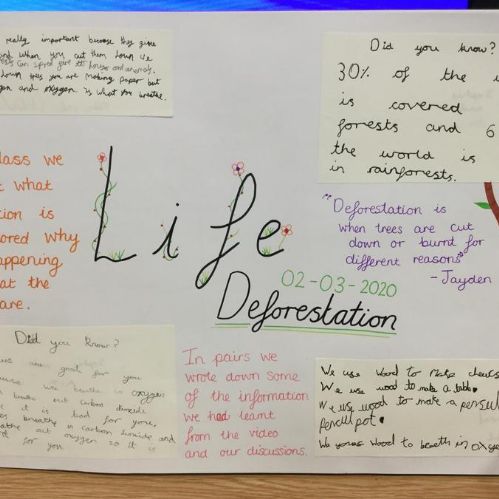 really important because they give
and when you cut them down we
down trees you are making paper but
and oxygen is what you breathe.
Did you know?
30% of the
is covered
forests and 6
the world is
in rainforests.
lass we
t what
tion is
ored why
appening
at the
are.
Life
02-03-2020
Deforestation
"Deforestation is
when trees are cut
down or burnt for
different reasons"
- Jayden
Did you know?
are good for you
we breath in oxygen
breath out carbon dioxide
it is bad for you,
breathe in carbon dioxide and
out oxygen so it is
for you
In pairs we
wrote down some
of the information
we had learnt
from the video
and our discussions.
We use wood to make
We use wood to make a table.
We use wood to make a
pot.
We wood to in